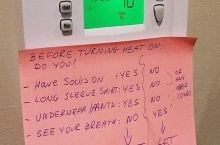 10
BEFORE TURNING HEAT ON:
DO YOU?
- HAVE SOCKS ON: YES NO
- LONG SLEEVE SHIRT: YES NO
- UNDERWEAR/PANTS: YES NO
- SEE YOUR BREATH: NO YES
OR
ANY
COMBO
GET